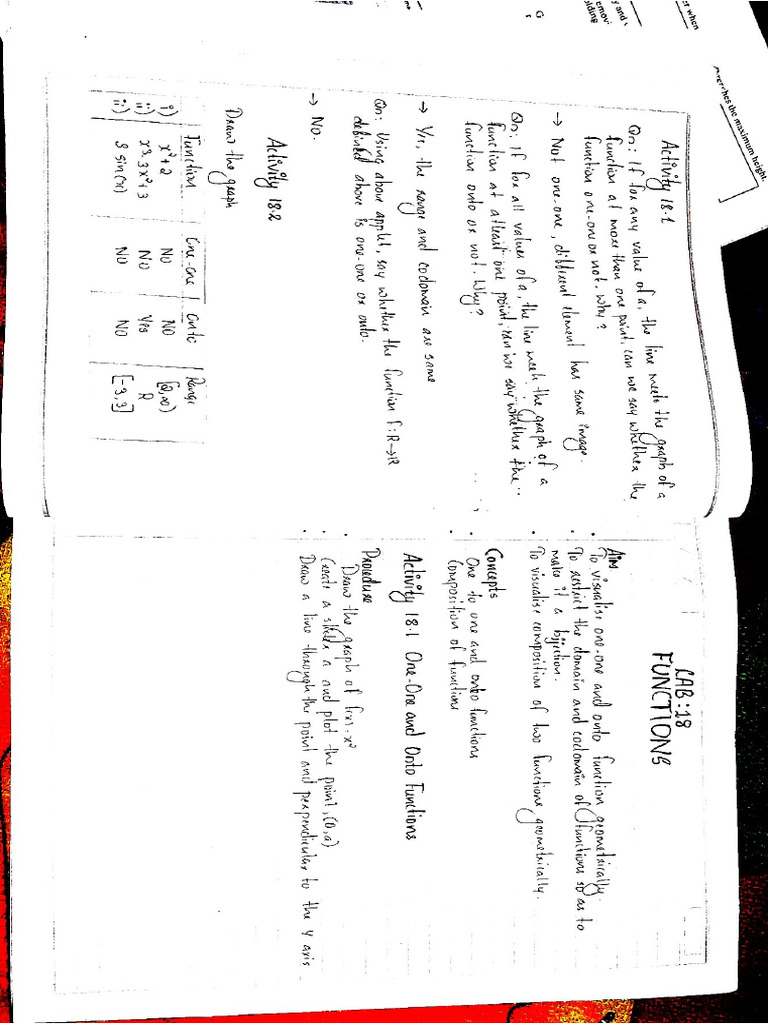 LAB:18
FUNCTIONS
Aim
• To visualise one-one and onto function geometrically.
• To restrict the domain and codomain of functions so as to
make it a bijection.
• To visualise composition of two functions geometrically.
Concepts
• One to one and onto functions
• Composition of functions
Activity 18.1 One-One and Onto Functions
Procedure
• Draw the graph of f(x)=x²
• Create a slider a and plot the point, (0,a)
• Draw a line through the point and perpendicular to the y axis
Activity 18.1
Qn: If for any value of a, the line meets the graph of a
function at more than one point, can we say whether the
function one-one or not. Why?
→ Not one-one, different element has same image.
Qn: If for all values of a, the line meets the graph of a
function at atleast one point, can we say whether the
function onto or not. Why?
→ Yes, the range and codomain are same
Qn: Using above applet, say whether the function f:R→R
defined above is one-one or onto.
→ No.
Activity 18.2
Draw the graph
Function One-one Onto Range
i) x²+2 NO NO [2,∞)
ii) x³-3x²+3 NO Yes R
iii) 3 sin(x) NO NO [-3,3]
er when
y and
emovi
olding
reaches the maximum height
G